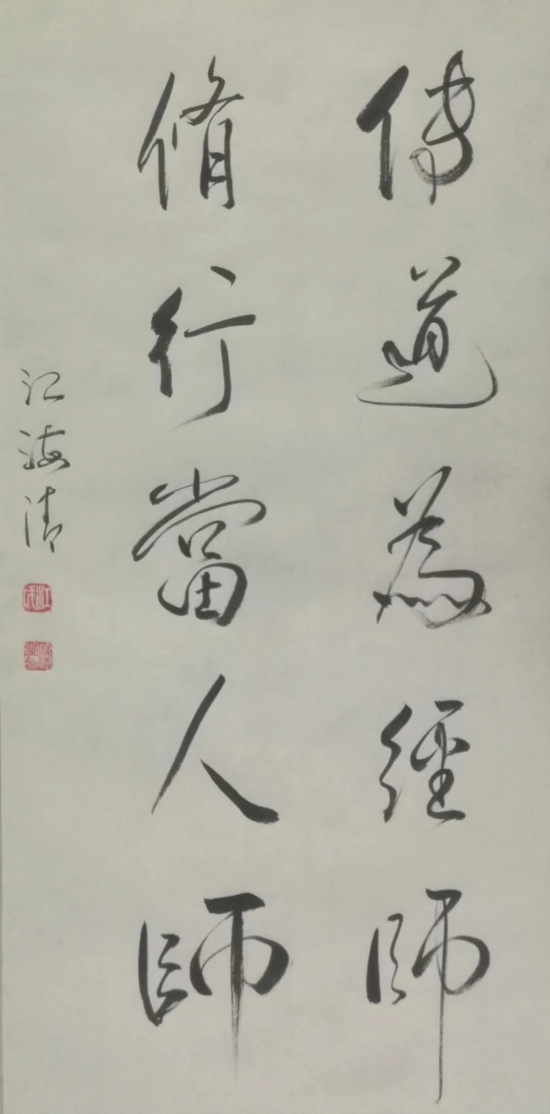 傳道為經師
脩行當人師
江海清